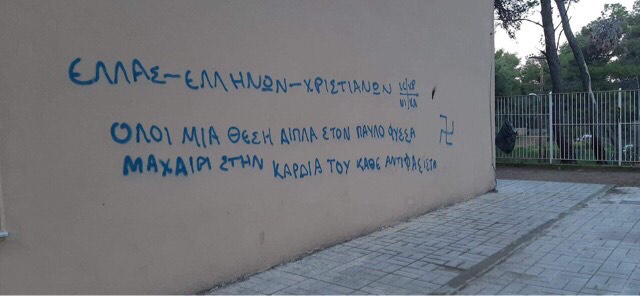 ΕΛΛΑΣ-ΕΛΛΗΝΩΝ-ΧΡΙΣΤΙΑΝΩΝ IC XC
ΝΙ ΚΑ
ΟΛΟΙ ΜΙΑ ΘΕΣΗ ΔΙΠΛΑ ΣΤΟΝ ΠΑΥΛΟ ΦΥΣΣΑ
ΜΑΧΑΙΡΙ ΣΤΗΝ ΚΑΡΔΙΑ ΤΟΥ ΚΑΘΕ ΑΝΤΙΦΑΣΙΣΤΑ